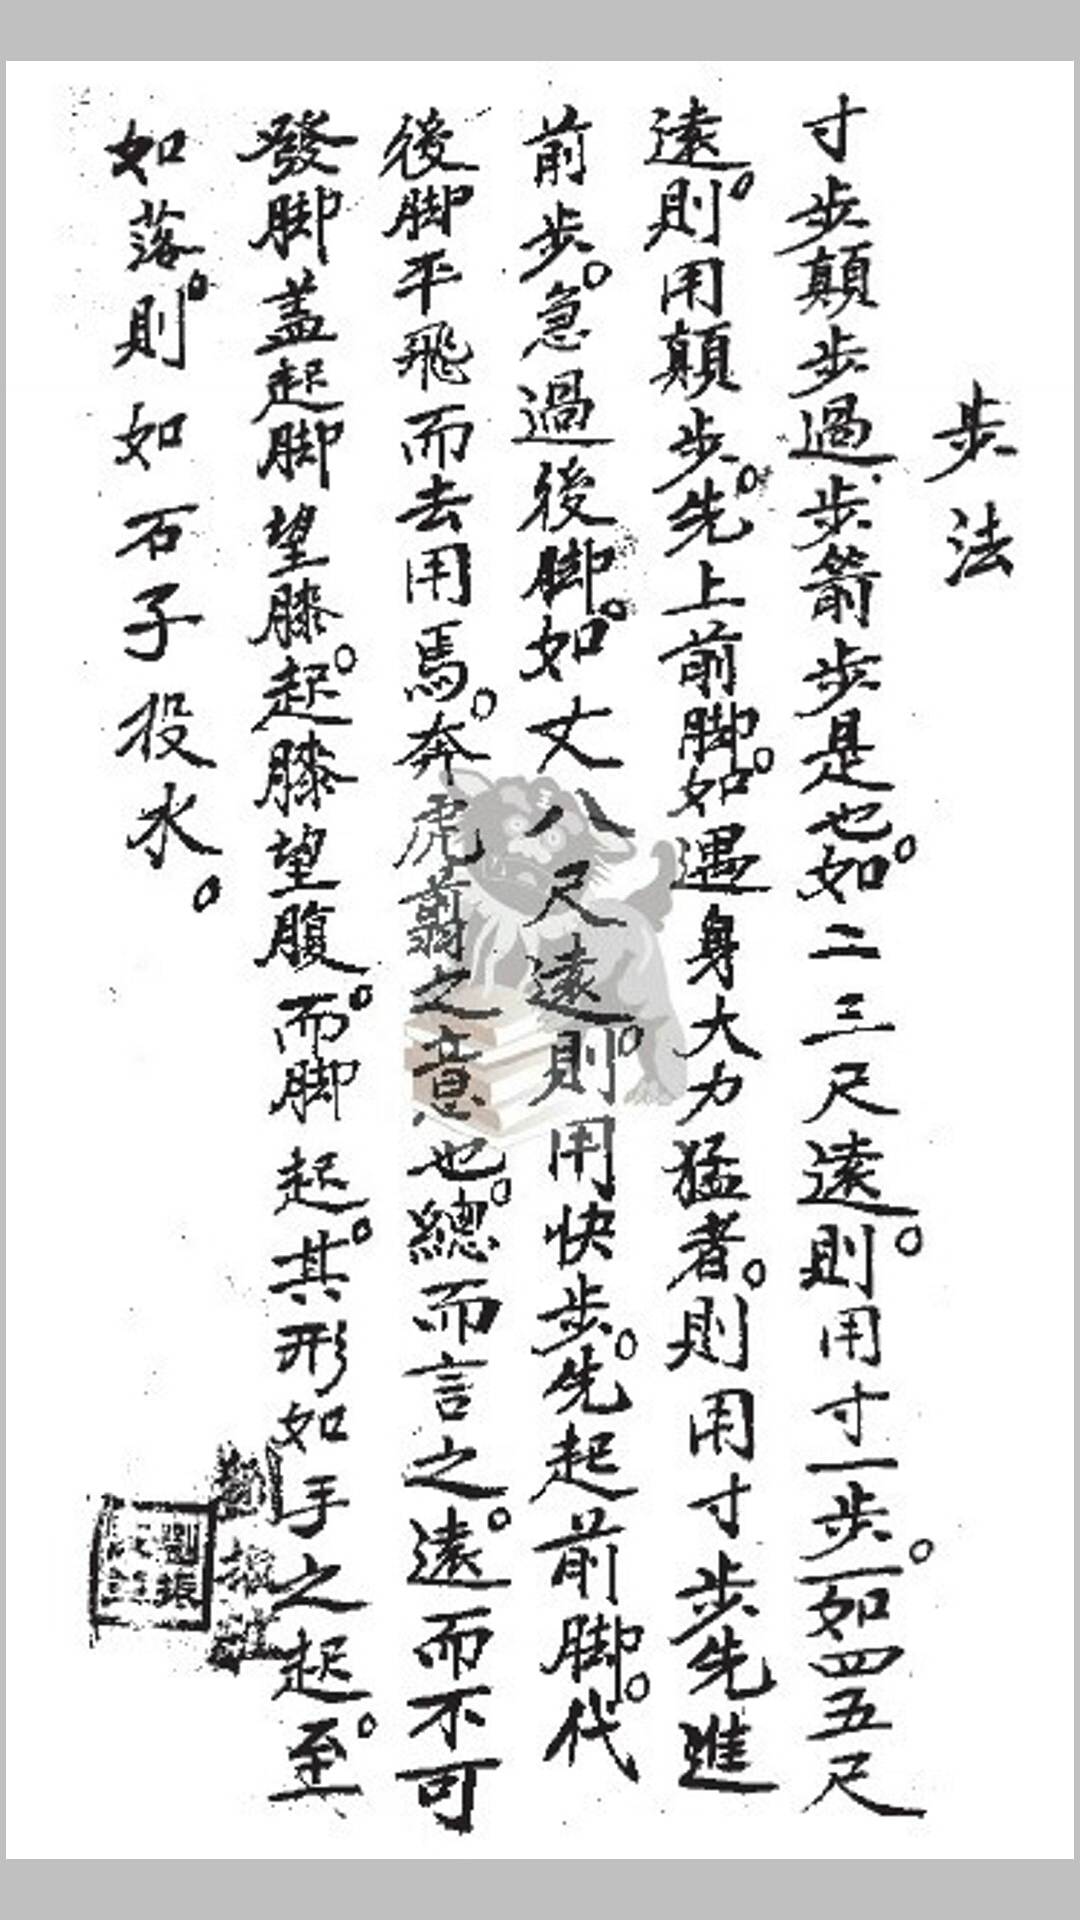 步法
寸步顛步過步箭步是也。如二三尺遠。則用寸一步。一如四五尺
遠。則用顛步。先上前脚。如遇身大力猛者。則用寸步先進
前步。急過後脚。如丈八尺遠。則用快步。先起前脚。代
後脚平飛而去用馬。奔虎翦之意也。總而言之。遠而不可
發脚盖起脚望膝。起膝望腹。而脚起。其形如手之起。至
如落。則如石子投水。
劉振